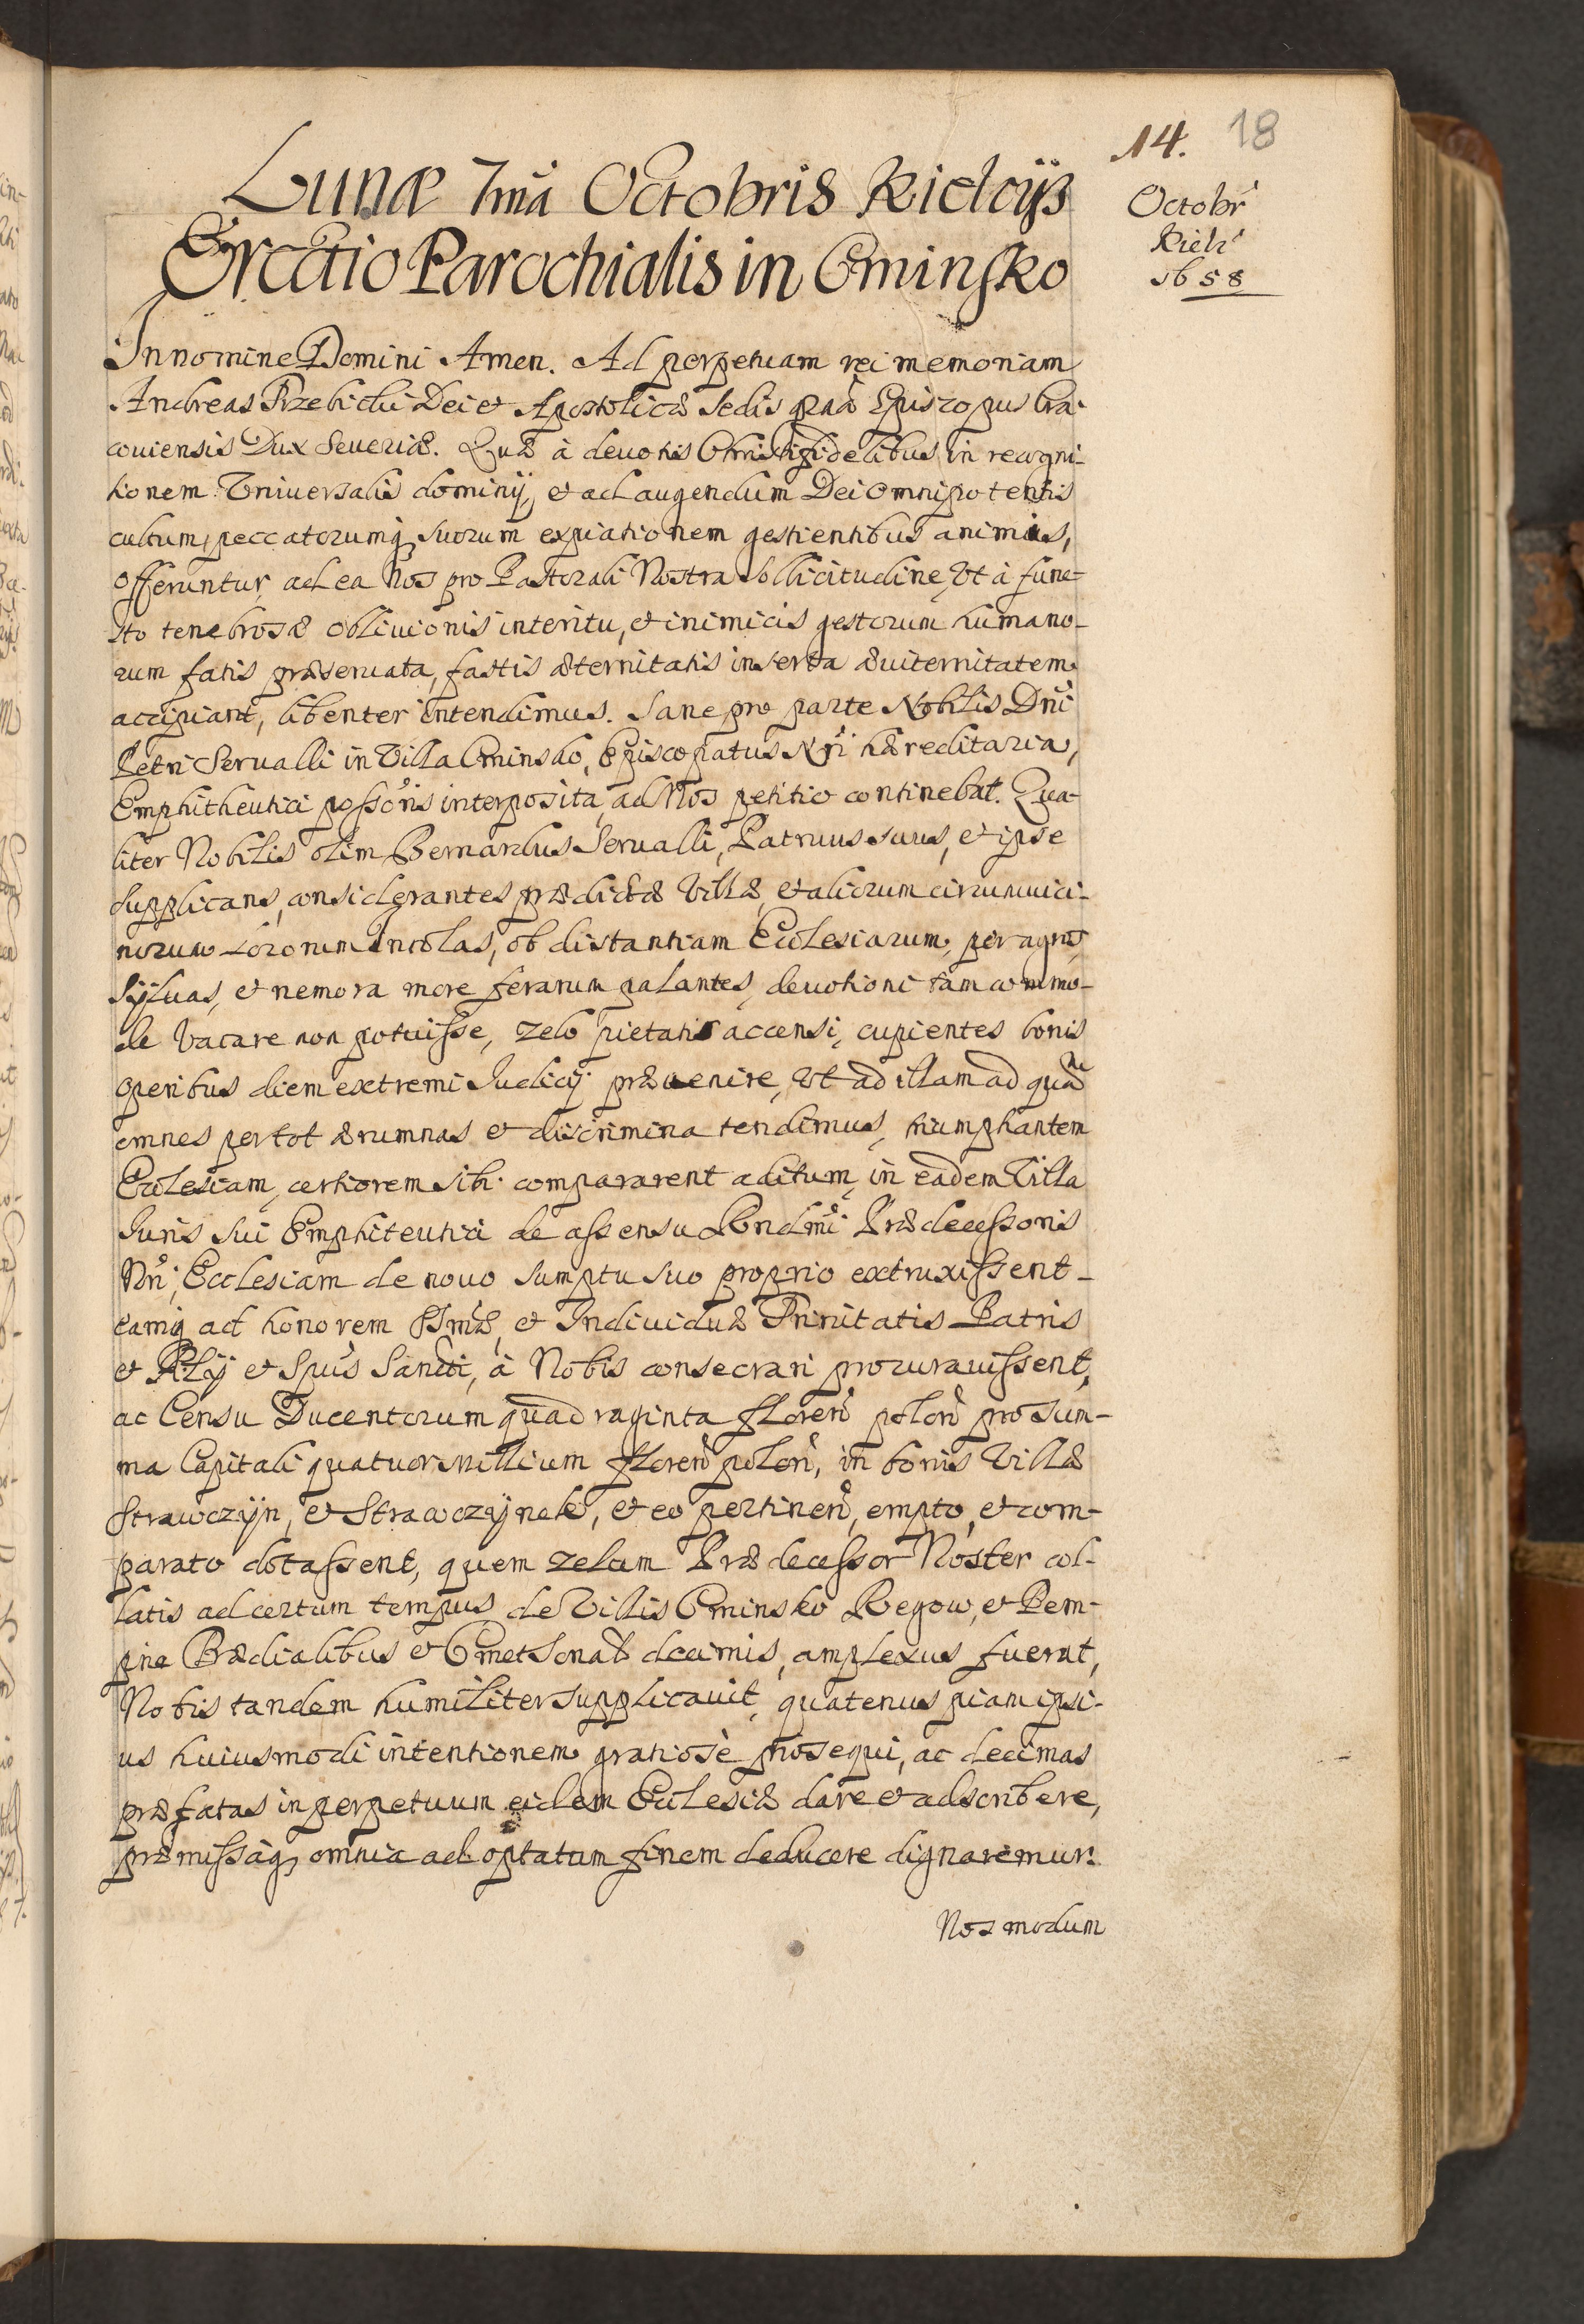 14. 18
Octobr̃
Kielc̃
1658
Lunæ 7mã Octobris Kielcijs
Erectio Parochialis in Cminsko
In nomine Domini Amen. Ad perpetuam rei memoriam
Andreas Trzebicki Dei et Apostolicæ Sedis grãa Episcopus Cra-
couiensis Dux Seueriæ. Quæ à deuotis Christifidelibus in recogni-
tionem Vniuersalis dominij, et ad augendum Dei Omnipotentis
cultum, peccatorumq; suorum expiationem gestientibus animis,
offeruntur, ad ea Nos pro Pastorali Nostra sollicitudine, Vt à fune-
sto tenebrosæ obliuionis interitu, et inimicis gestorum humano-
rum fatis præseruata, fastis æternitatis inserta æuiternitatem
accipiant, libenter intendimus. Sane pro parte Nobilis Dñi
Petri Serualli in Villa Cminsko, Episcopatus Nr̃i hæreditaria,
Emphitheutici possor̃is interposita, ad Nos petitio continebat. Qua-
liter Nobilis olim Bernardus Serualli, Patruus suus, et ipse
supplicans, considerantes prædictæ Villæ, et aliorum circumuici-
norum Locorum Incolas, ob distantiam Ecclesiarum, per agros,
Syluas, et nemora more ferarum palantes, deuotioni tam commo-
de Vacare non potuisse, zelo pietatis accensi, cupientes bonis
operibus diem extremi Iudicij præuenire, Vt ad illam ad quãm
omnes per tot ærumnas et discrimina tendimus, triumphantem
Ecclesiam, certiorem sibi compararent aditum, in eadem Villa
Iuris sui Emphiteutici de assensu Rndm̃i Prædecessoris
Nr̃i, Ecclesiam de nouo sumptu suo proprio extruxissent
eamq; ad honorem SSm̃æ, et Indiuiduæ Trinitatis Patris
et Filij et Spũs Sancti, à Nobis consecrari procurauissent,
ac Censu Ducentorum quadraginta floreñ poloñ pro Sum-
ma Capitali quatuor millium floreñ poloñ, in bonis Villæ
Strawczyn, et Strawczynek, et eo pertineñ, empto, et com-
parato dotassent, quem zelum Prædecessor Noster col-
latis ad certum tempus de Villis Cminsko Regow, et Pem-
pice Prædialibus et Cmetonał decimis, amplexus fuerat,
Nobis tandem humiliter supplicauit, quatenus piam ipsi-
us huiusmodi intentionem gratiosè prosequi, ac decimas
præfatas in perpetuum eidem Ecclesiæ dare et adscribere,
præmissaq; omnia ad optatum finem deducere dignaremur.
Nos modum